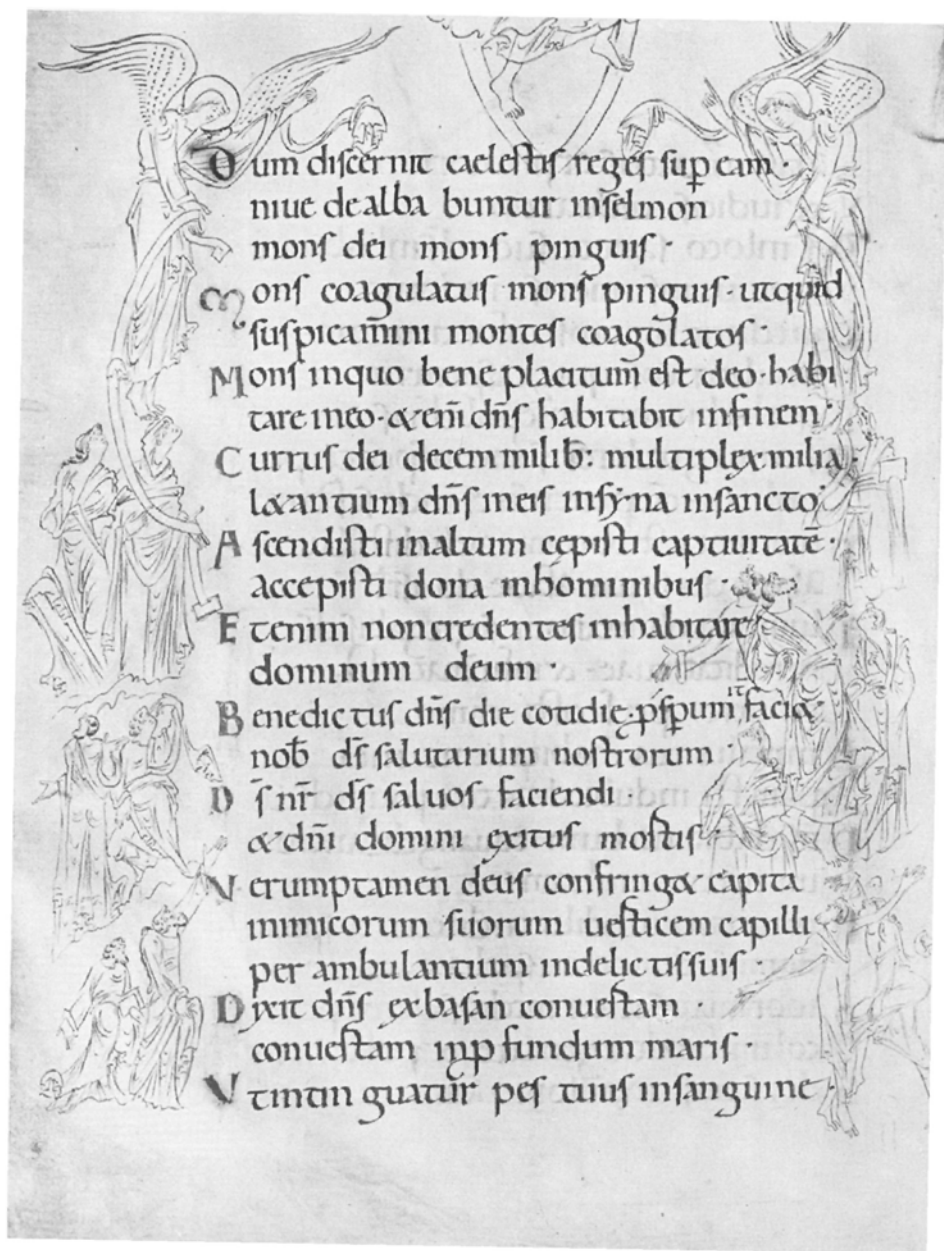 Dum discernit caelestis reges sup̄ eam ·
niue de alba buntur inselmon
mons dei mons pinguis ·
Mons coagulatus mons pinguis · utquid
suspicam̄ini montes coagolatos ·
Mons inquo bene placitum est deo · habi
tare ineo · &eni̅ dn̅s habitabit infinem ·
Currus dei decem milib: multiplex milia
l&antium dn̅s ineis insyna insancto
Ascendisti inaltum cepisti captiuitate̅ ·
accepisti dona inhominibus ·
Etenim noncredentes inhabitare
dominum deum ·
Benedictus dn̅s die cotidie · ꝓsꝑum it faci&
nob̅ ds̅ salutarium nostrorum ·
Ds̅ nr̅ ds̅ saluos faciendi ·
& dn̅i domini exitus mortis
Verumptamen deus confring& capita
inimicorum suorum uerticem capilli
per ambulantium indelictissuis ·
Dixit dn̅s exbasan conuertam ·
conuertam inp fundum maris ·
Vtintin guatur pes tuus insanguine